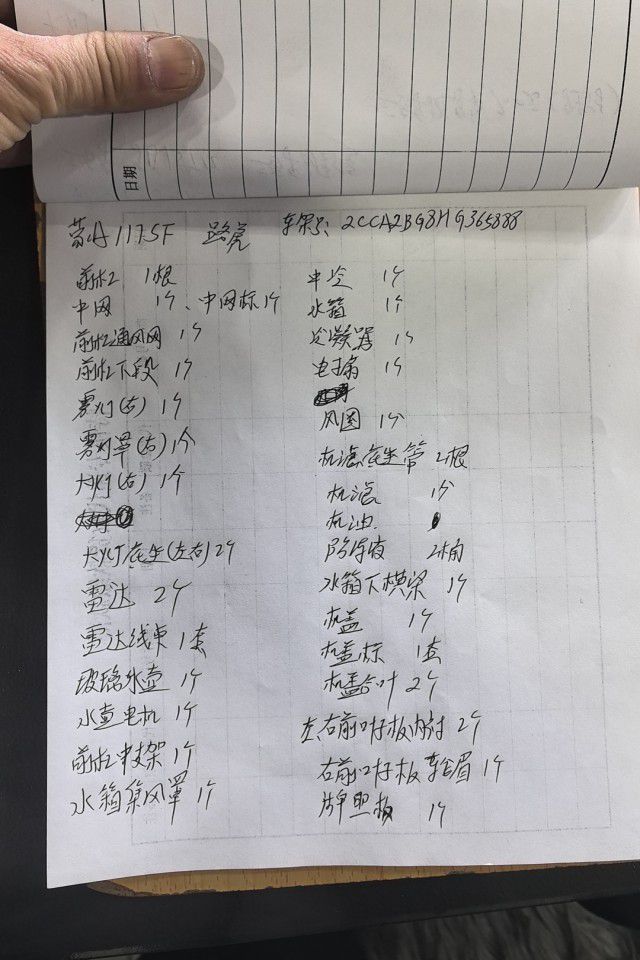 日期
路虎 车架号: 2CCA2BG8HG365888
前杠 1根
中网 1个、中网标1个
前杠通风网 1个
前杠下段 1个
雾灯(右) 1个
雾灯罩(右) 1个
大灯(右) 1个
大灯底坐(左右) 2个
雷达 2个
雷达线束 1套
玻璃水壶 1个
水壶电机 1个
前杠中支架 1个
水箱集风罩 1个
中冷 1个
水箱 1个
冷凝器 1个
电子扇 1个
风圈 1个
机滤底坐管 2根
机滤 1个
机油
防冻液 2桶
水箱下横梁 1个
机盖 1个
机盖标 1套
机盖合叶 2个
左、右前叶子板内衬 2个
右前叶子板轮眉 1个
牌照板 1个